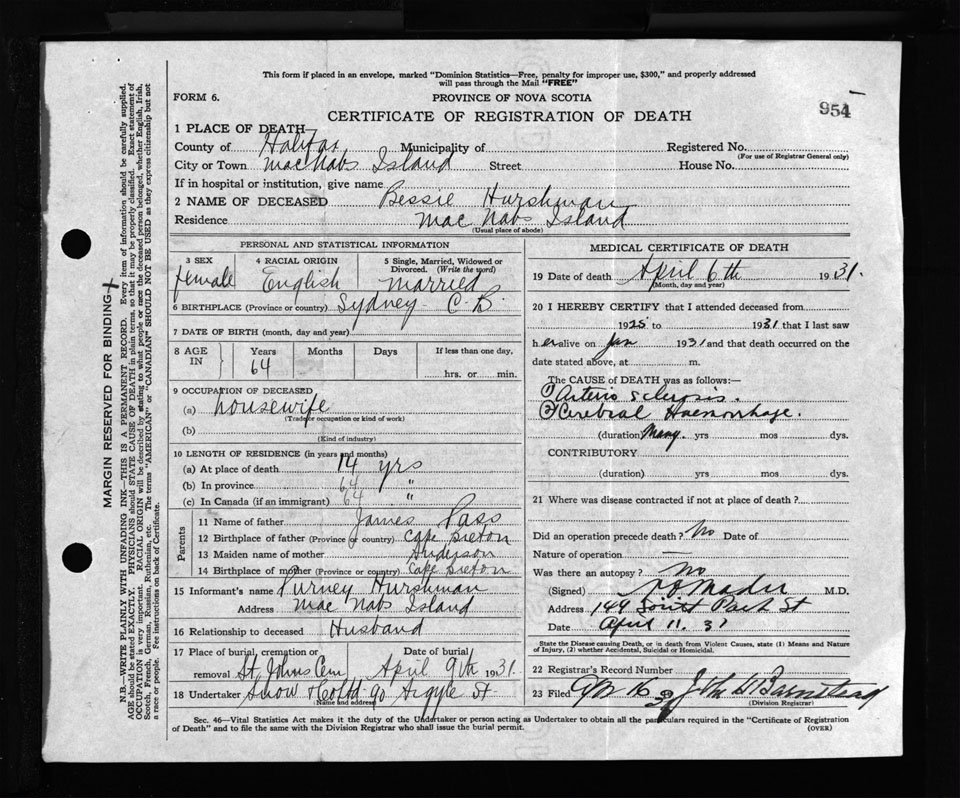 This form if placed in an envelope, marked "Dominion Statistics—Free, penalty for improper use, $300," and properly addressed
will pass through the Mail "FREE"
FORM 6.
PROVINCE OF NOVA SCOTIA
954
CERTIFICATE OF REGISTRATION OF DEATH
1 PLACE OF DEATH—
County of Halifax Municipality of Registered No.
(For use of Registrar General only)
City or Town MacNabs Island Street House No.
If in hospital or institution, give name
2 NAME OF DECEASED Bessie Hurshman
Residence Mac Nabs Island
(Usual place of abode)
PERSONAL AND STATISTICAL INFORMATION
3 SEX 4 RACIAL ORIGIN 5 Single, Married, Widowed or
Divorced. (Write the word)
female English Married
6 BIRTHPLACE (Province or country) Sydney C.B.
7 DATE OF BIRTH (month, day and year)
8 AGE IN Years Months Days If less than one day,
64 hrs. or min.
9 OCCUPATION OF DECEASED
(a) housewife
(Trade or occupation or kind of work)
(b)
(Kind of industry)
10 LENGTH OF RESIDENCE (in years and months)
(a) At place of death 14 yrs
(b) In province 64 "
(c) In Canada (if an immigrant) 64 "
Parents
11 Name of father James Pass
12 Birthplace of father (Province or country) Cape Breton
13 Maiden name of mother Anderson
14 Birthplace of mother (Province or country) Cape Breton
15 Informant's name Purney Hurshman
Address Mac Nabs Island
16 Relationship to deceased Husband
17 Place of burial, cremation or Date of burial
removal St. Johns Cem April 9th 1931.
18 Undertaker Snow & Co Ltd 90 Argyle St
(Name and address)
MEDICAL CERTIFICATE OF DEATH
19 Date of death April 6th 1931.
(Month, day and year)
20 I HEREBY CERTIFY that I attended deceased from
1925 to 1931 that I last saw
her alive on Jan 1931 and that death occurred on the
date stated above, at m.
The CAUSE of DEATH was as follows:—
(1) Arterio sclerosis.
(2) Cerebral Haemorrhage.
(duration) Many yrs mos dys.
CONTRIBUTORY
(duration) yrs mos dys.
21 Where was disease contracted if not at place of death?
Did an operation precede death? No Date of
Nature of operation —
Was there an autopsy? No
(Signed) Mader M.D.
Address 149 South Park St
Date April 11. 31
State the Disease causing Death, or in death from Violent Causes, state (1) Means and Nature
of Injury, (2) whether Accidental, Suicidal or Homicidal.
22 Registrar's Record Number
23 Filed 16 31 Barnstead
(Division Registrar)
Sec. 46—Vital Statistics Act makes it the duty of the Undertaker or person acting as Undertaker to obtain all the particulars required in the "Certificate of Registration
of Death" and to file the same with the Division Registrar who shall issue the burial permit. (OVER)
MARGIN RESERVED FOR BINDING
N.B.—WRITE PLAINLY WITH UNFADING INK—THIS IS A PERMANENT RECORD. Every item of information should be carefully supplied.
AGE should be stated EXACTLY. PHYSICIANS should STATE CAUSE OF DEATH in plain terms, so that it may be properly classified. Exact statement of
OCCUPATION is very important. RACIAL ORIGIN will be described by stating to what people or race the deceased person belonged, whether English, Irish,
Scotch, French, German, Russian, Ruthenian, etc. The terms "AMERICAN" or "CANADIAN" SHOULD NOT BE USED as they express citizenship but not
a race or people. See instructions on back of Certificate.